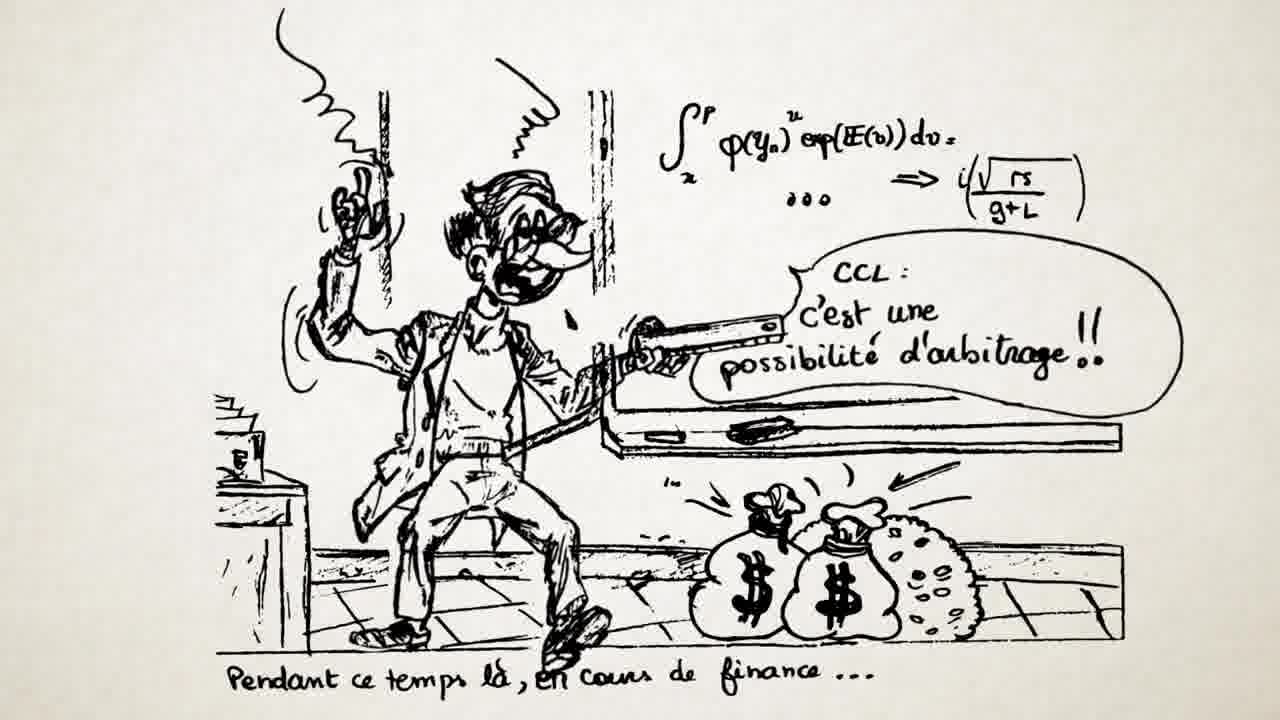 ∫ₓᵖ φ(yₙ)ᵘ exp(𝔼(v)) dv =
... ⇒ i(√rs / g+L)
CCL :
c'est une
possibilité d'arbitrage !!
$ $
Pendant ce temps là, en cours de finance ...